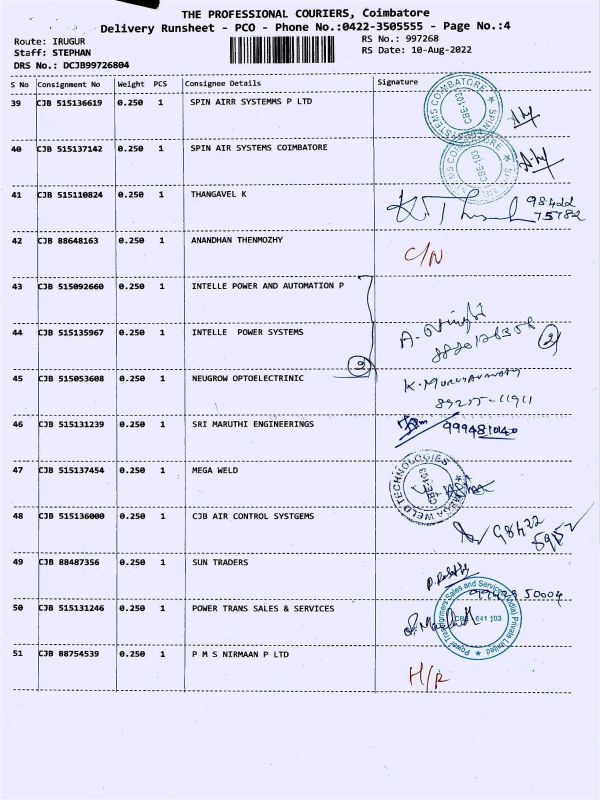 THE PROFESSIONAL COURIERS, Coimbatore
Delivery Runsheet - PCO - Phone No.:0422-3505555 - Page No.:4
Route: IRUGUR
RS No.: 997268
Staff: STEPHAN
RS Date: 10-Aug-2022
DRS No.: DCJB99726804
S No Consignment No Weight PCS Consignee Details Signature
39 CJB 515136619 0.250 1 SPIN AIRR SYSTEMMS P LTD
40 CJB 515137142 0.250 1 SPIN AIR SYSTEMS COIMBATORE
41 CJB 515110824 0.250 1 THANGAVEL K
98422
75782
42 CJB 88648163 0.250 1 ANANDHAN THENMOZHY
C/N
43 CJB 515092660 0.250 1 INTELLE POWER AND AUTOMATION P
44 CJB 515135967 0.250 1 INTELLE POWER SYSTEMS
45 CJB 515053608 0.250 1 NEUGROW OPTOELECTRINIC
46 CJB 515131239 0.250 1 SRI MARUTHI ENGINEERINGS
9994810140
47 CJB 515137454 0.250 1 MEGA WELD
MEGA WELD TECHNOLOGIES
CBE-103
48 CJB 515136000 0.250 1 CJB AIR CONTROL SYSTGEMS
49 CJB 88487356 0.250 1 SUN TRADERS
50 CJB 515131246 0.250 1 POWER TRANS SALES & SERVICES
51 CJB 88754539 0.250 1 P M S NIRMAAN P LTD
H/R